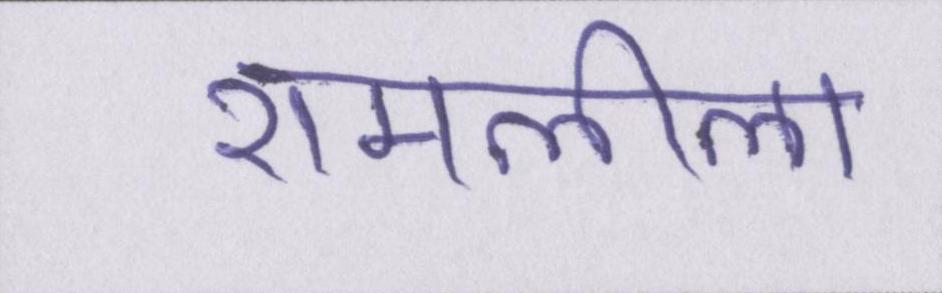 रामलीला